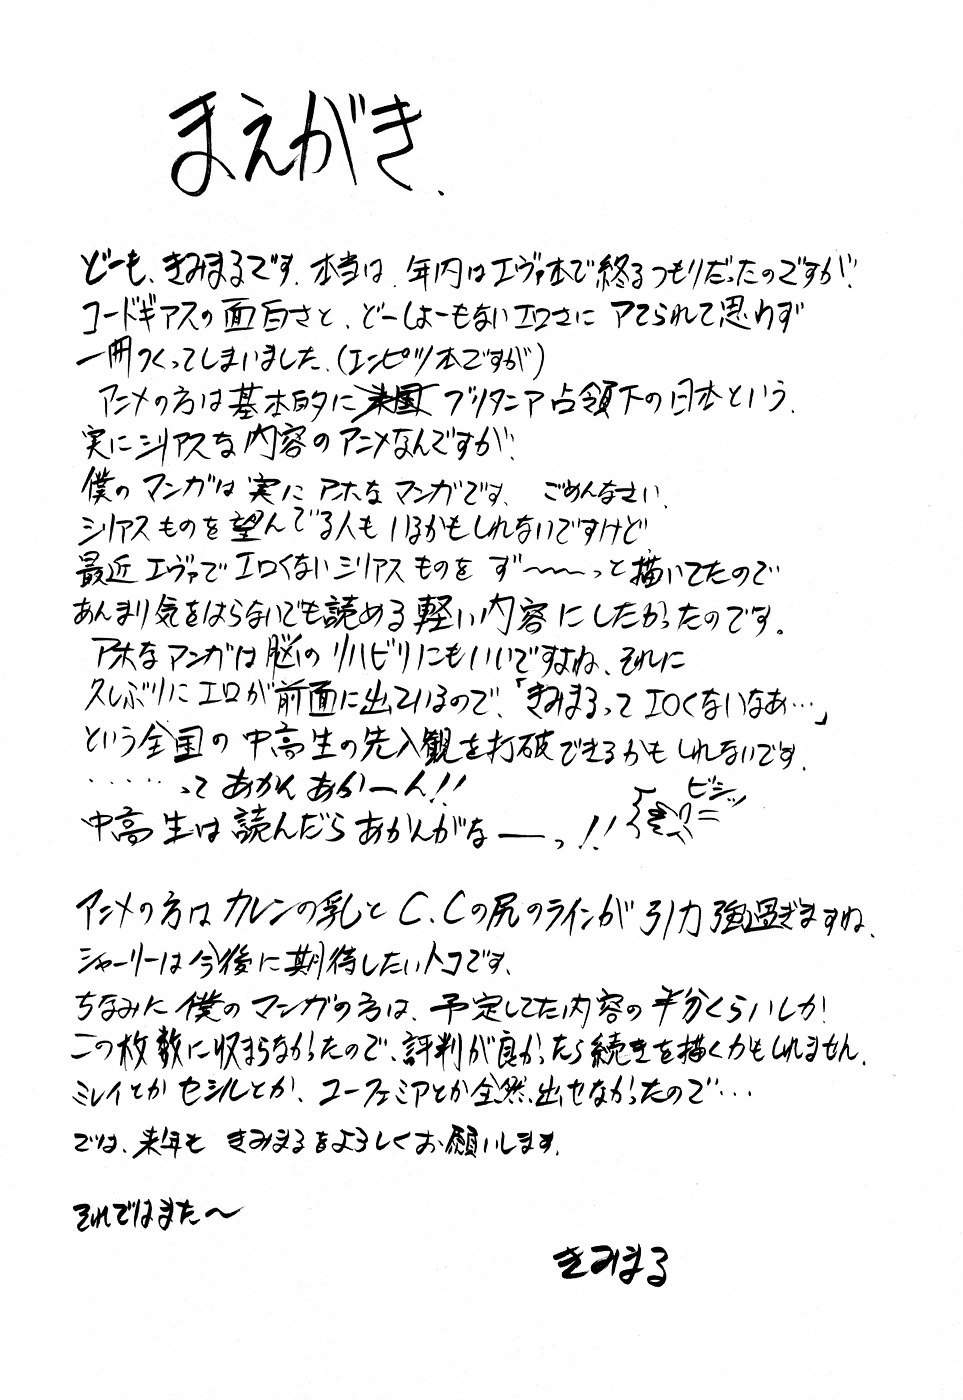 まえがき、
どーも、きみまるです。本当は、年内はエヴァ本で終るつもりだったのですが、
コードギアスの面白さと、どーしよーもないエロさに アてられて思わず
一冊つくってしまいました。(エンピツ本ですが)
アニメの方は基本的に米国 ブリタニア占領下の日本という、
実にシリアスな内容のアニメなんですが、
僕のマンガは実に アホなマンガです、ごめんなさい、
シリアスものを望んでる人もいるかもしれないですけど
最近 エヴァでエロくないシリアスものを ず〜〜〜っと描いてたので
あんまり気をはらないでも読める軽い内容にしたかったのです。
アホなマンガは脳のリハビリにもいいですよね、それに
久しぶりにエロが前面に出ているので、「きみまるってエロくないなあ…」
という全国の中高生の先入観を打破できるかもしれないです、
……ってあかんあかーん!!
ビシッ
中高生は読んだらあかんがなーっ!!
アニメの方はカレンの乳とC.Cの尻のラインが引力強過ぎますね、
シャーリーは今後に期待したいトコです、
ちなみに僕のマンガの方は、予定してた内容の半分くらいしか
この枚数に収まらなかったので、評判が良かったら続きを描くかもしれません、
ミレイとかセシルとか、ユーフェミアとか全然出せなかったので…
では、来年も きみまるをよろしくお願いします、
それではまた〜
きみまる